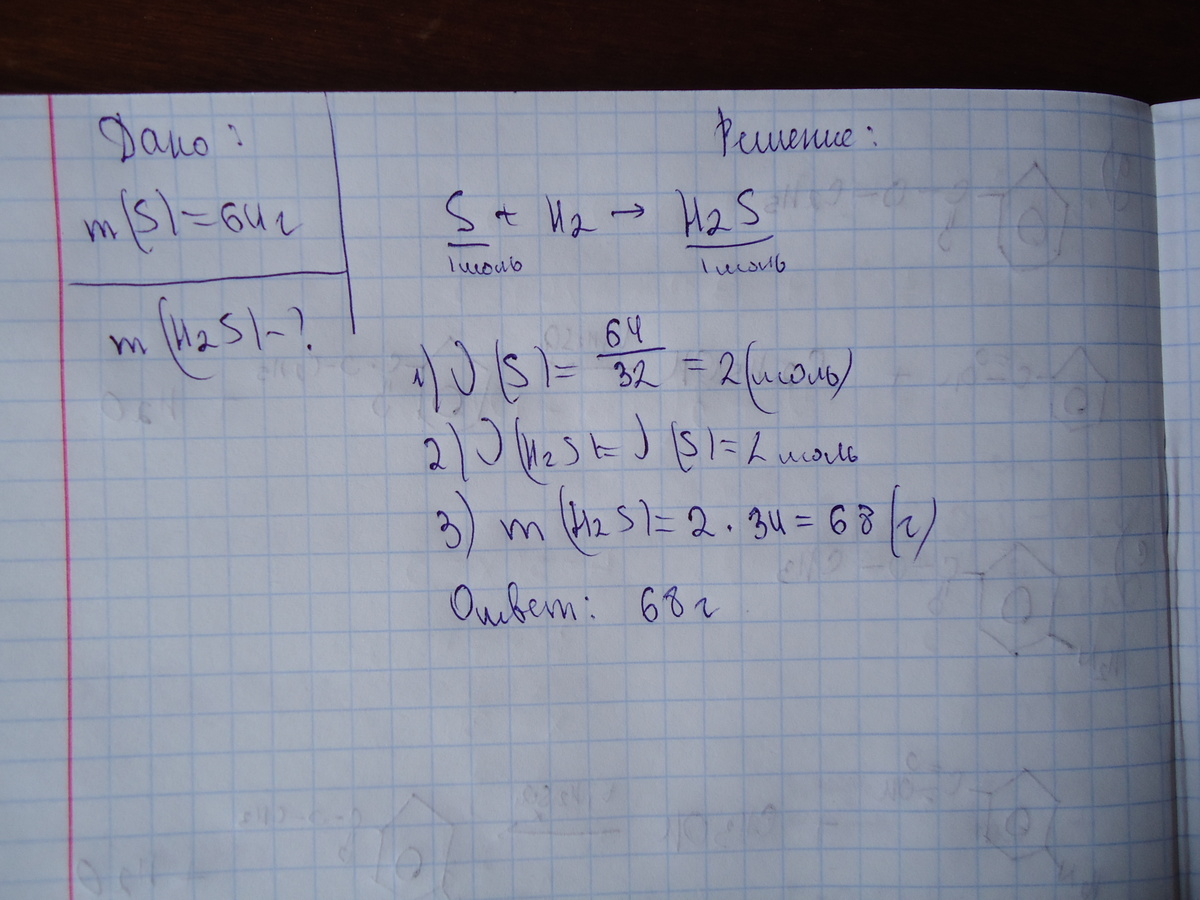 Дано:
m(S)=64г
m(H2S)-?
Решение:
S + H2 → H2S
1моль 1моль
1) ν(S)= 64/32 = 2(моль)
2) ν(H2S)= ν(S)=2моль
3) m(H2S)=2·34=68(г)
Ответ: 68г